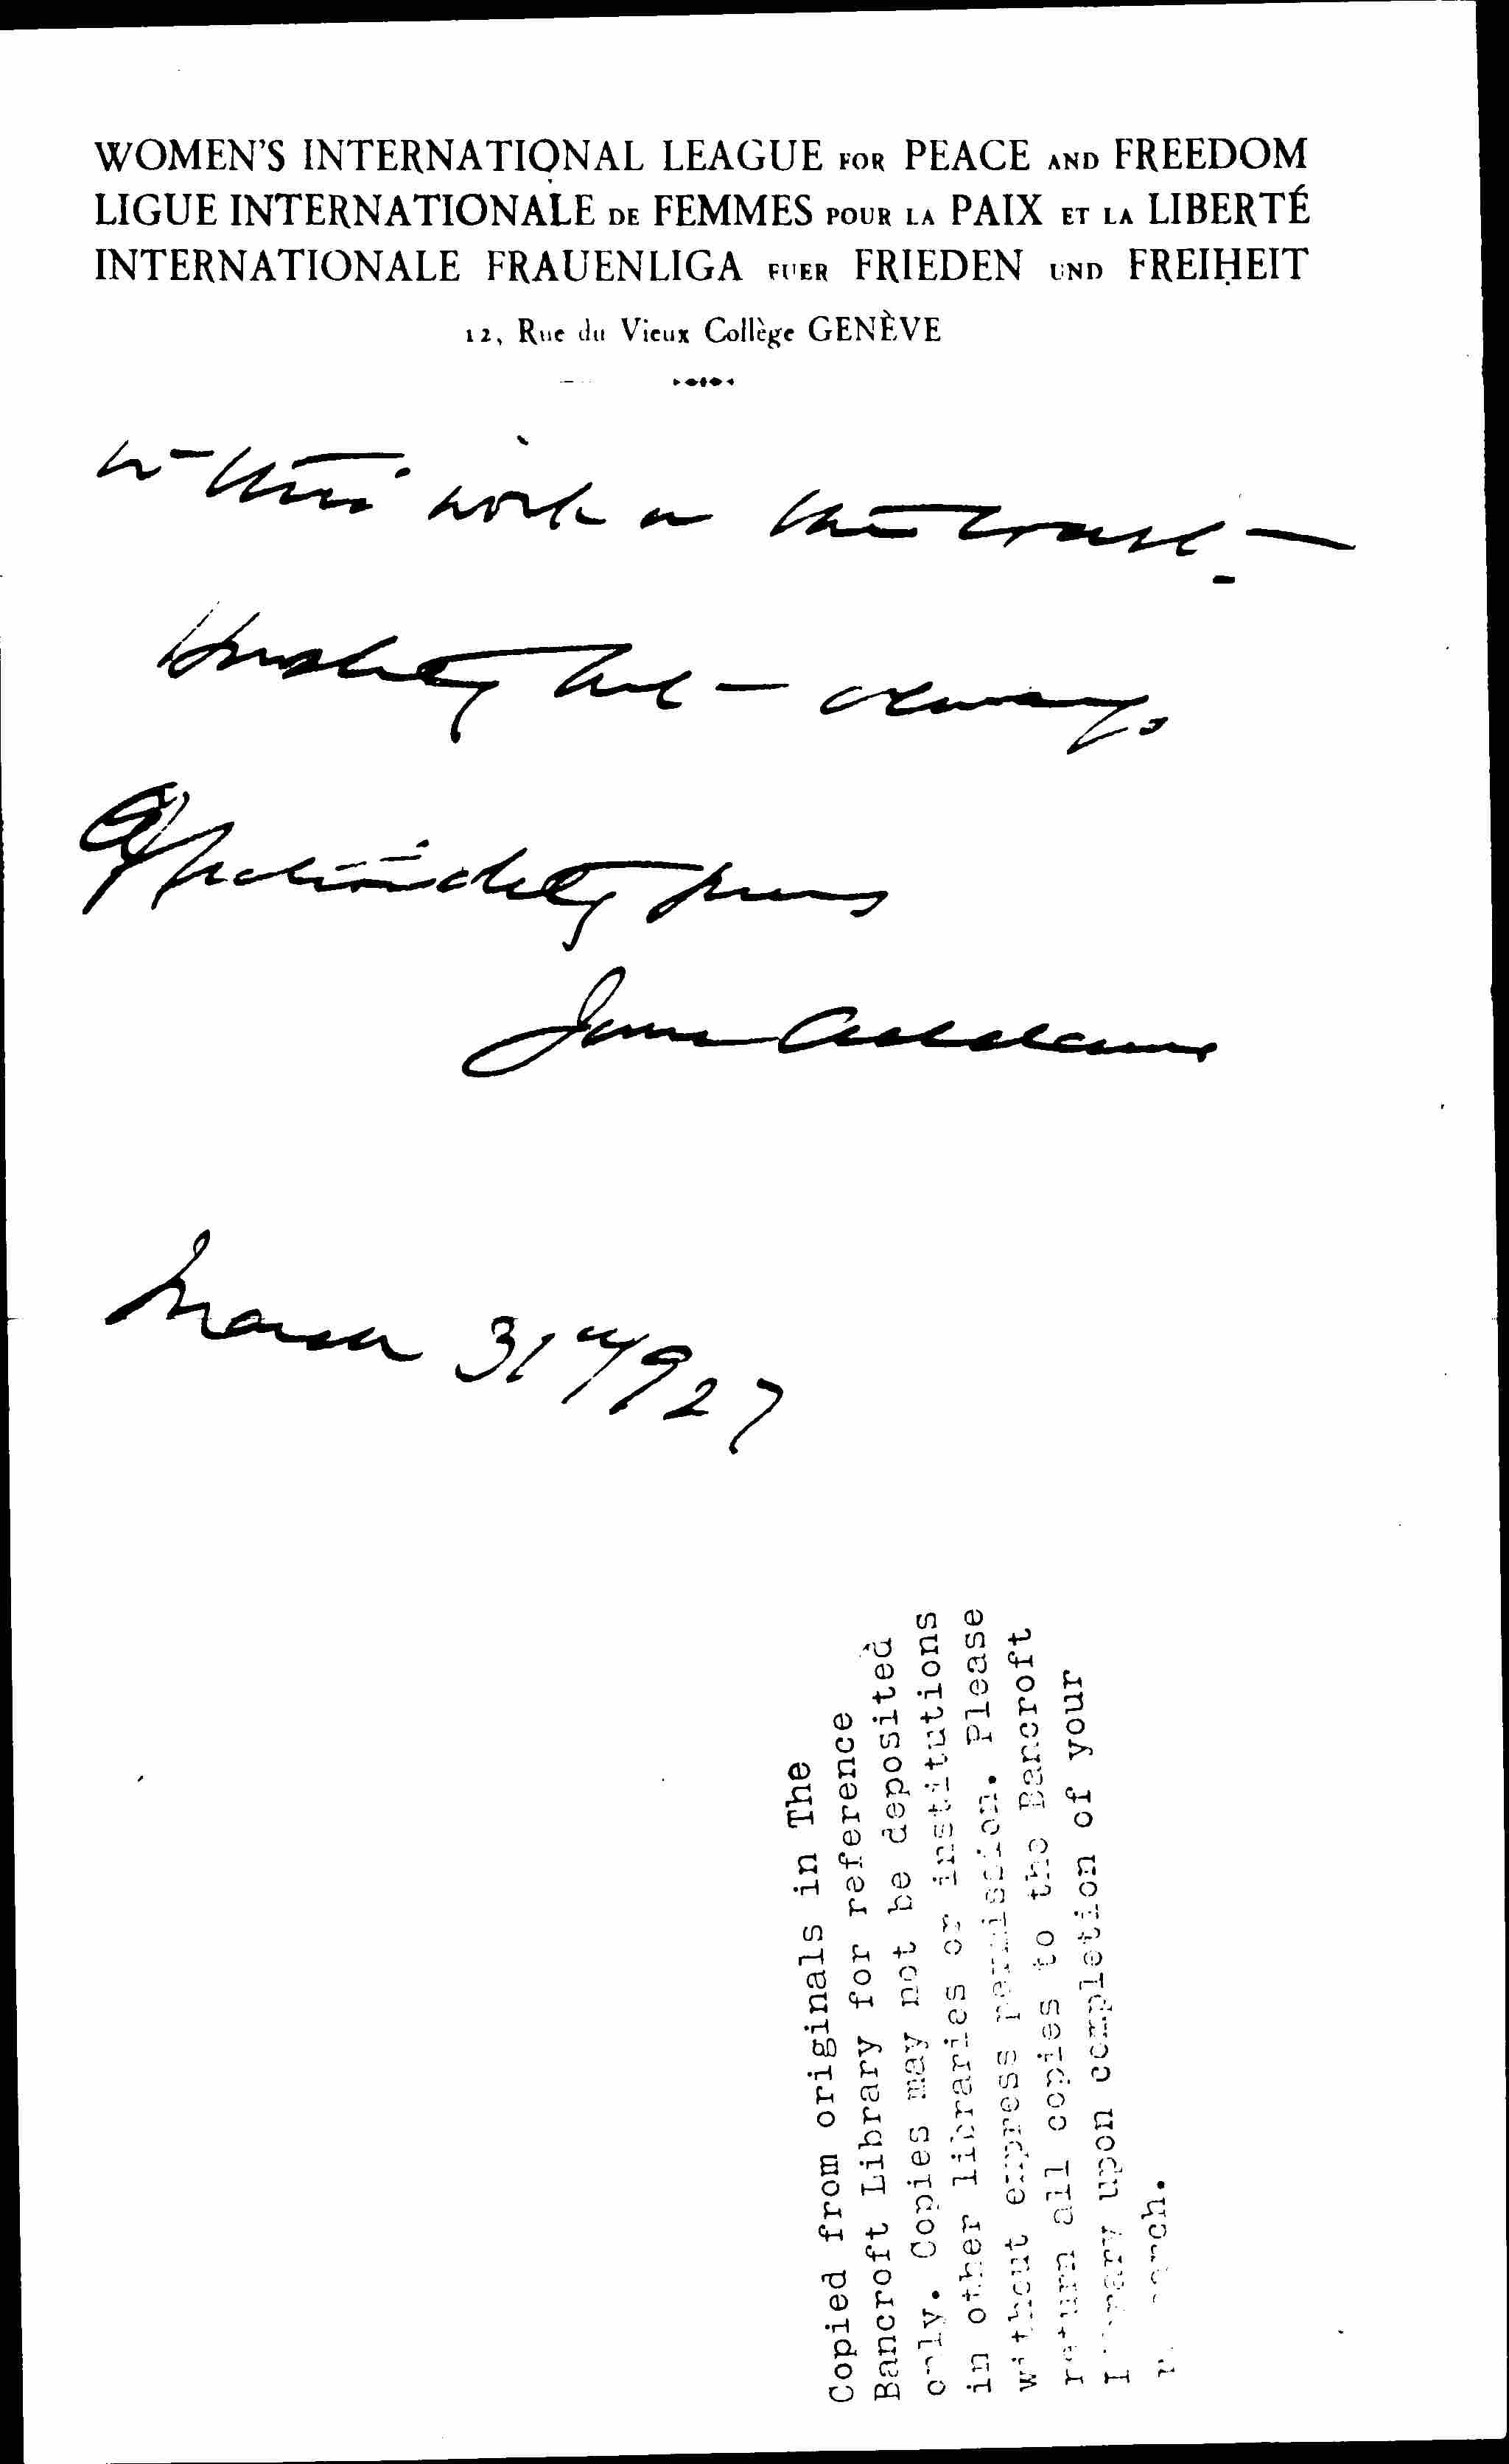 WOMEN'S INTERNATIONAL LEAGUE FOR PEACE AND FREEDOM
LIGUE INTERNATIONALE DE FEMMES POUR LA PAIX ET LA LIBERTÉ
INTERNATIONALE FRAUENLIGA FUER FRIEDEN UND FREIHEIT
12, Rue du Vieux Collège GENÈVE
work on the coast -
always
Affectionately yours
Jane Addams
March 31" 1927
Copied from originals in The
Bancroft Library for reference
only. Copies may not be deposited
in other libraries or institutions
without express permission. Please
return all copies to the Bancroft
Library upon completion of your
research.